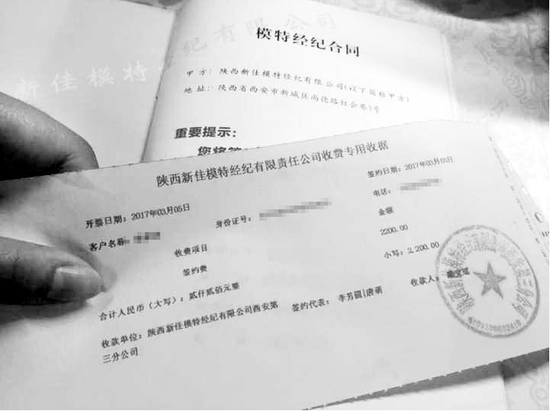 模特经纪合同
甲方:陕西新佳模特经纪有限公司(以下简称甲方)
地址:陕西省西安市新城区尚德路红会巷5号
重要提示:
陕西新佳模特经纪有限责任公司收费专用收据
开票日期:2017年03月05日 身份证号: 签约日期:2017年03月03日
客户名称: 电话:
收费项目 金额
签约费 2200.00
合计人民币(大写):贰仟贰佰元整 小写:2,200.00
收款单位:陕西新佳模特经纪有限公司西安第三分公司 签约代表:李芳圆|唐萌 收款人: